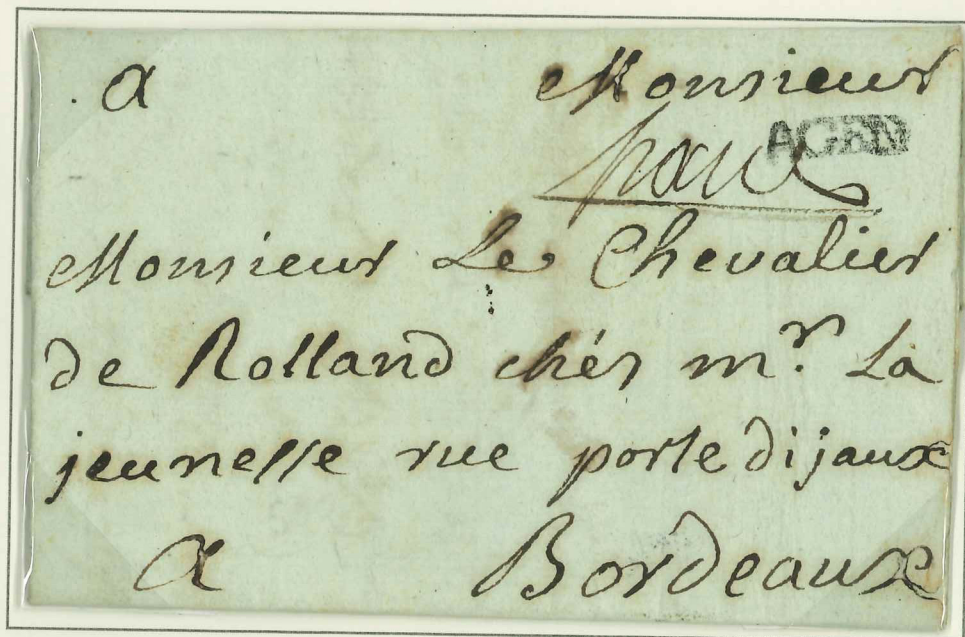 a Monsieur
AGEN
Monsieur Le Chevalier
de Rolland chés mr. La
jeunesse rue porte dijaux
a Bordeaux